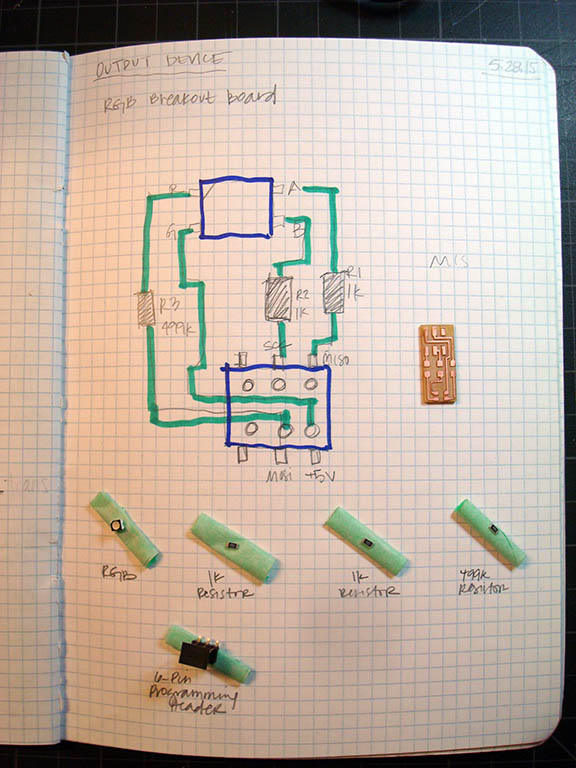 OUTPUT DEVICE
5.28.15
RGB Breakout board
R
A
G
B
R1
1K
R2
1K
R3
499K
SCK
MISO
MOSI
+5V
RGB
1K
Resistor
1K
Resistor
499K
Resistor
6-Pin
Programming
Header